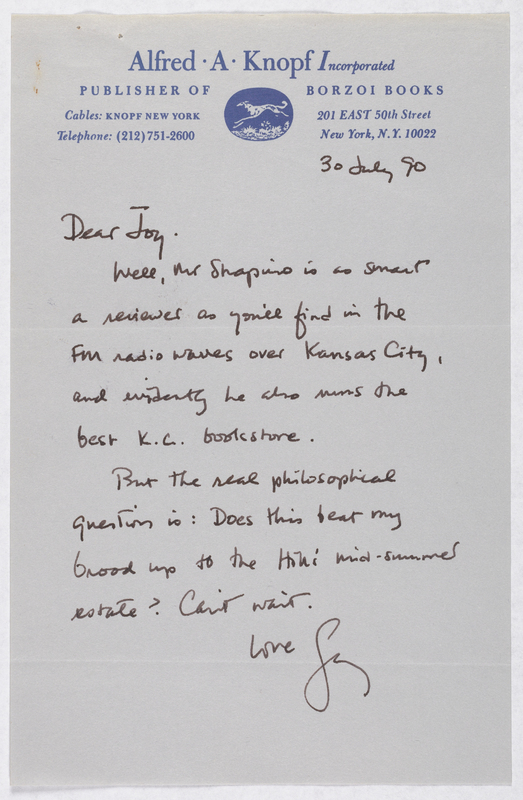 Alfred · A · Knopf Incorporated
PUBLISHER OF BORZOI BOOKS
Cables: KNOPF NEW YORK
Telephone: (212) 751-2600
201 EAST 50th Street
New York, N.Y. 10022
30 July 90
Dear Joy.
Well, Mr Shapiro is as smart
a reviewer as you'll find in the
FM radio waves over Kansas City,
and evidently he also runs the
best K.C. bookstore.
But the real philosophical
question is: Does this beat my
brood up to the mid-summer
estate? Can't wait.
Love